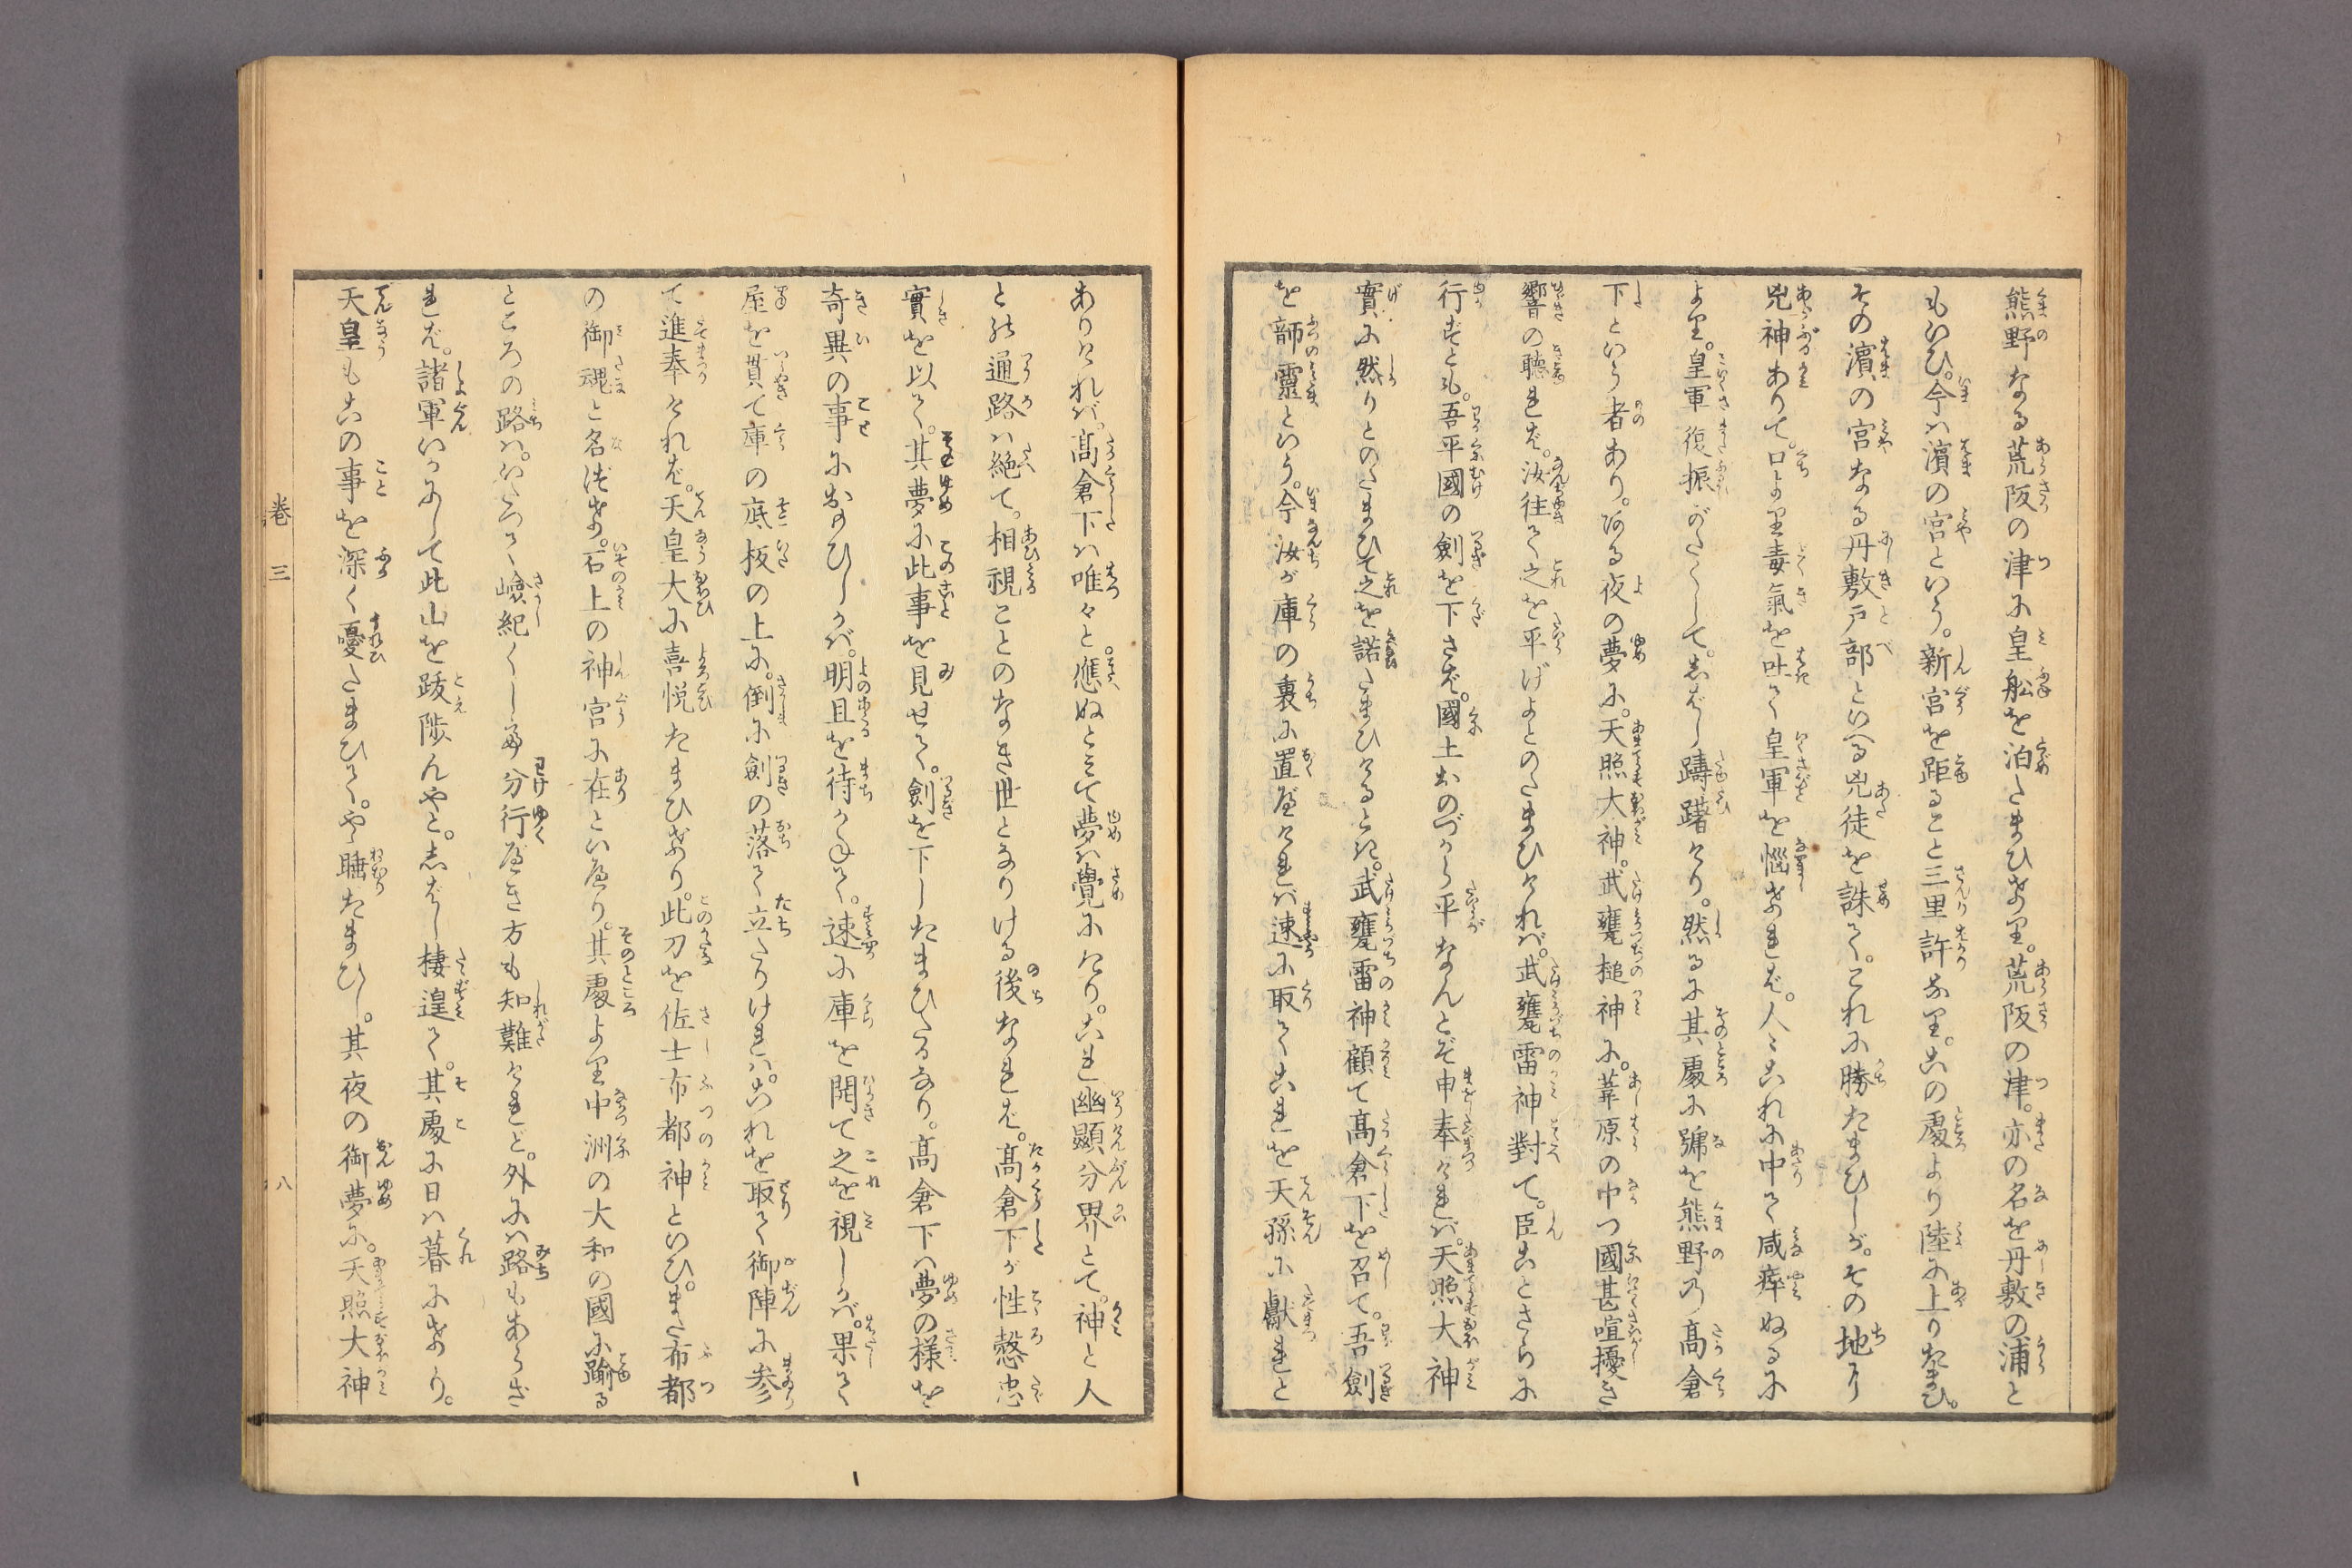 熊野なる荒阪の津に皇舩を泊たまひけり。荒阪の津。亦の名を丹敷の浦と
もいひ。今ハ濱の宮といふ。新宮を距ること三里許なり。この處より陸に上りたまひ。
その濱の宮なる丹敷戸部といへる兇徒を誅て。これに勝たまひしが。その地に
兇神ありて。口より毒氣を吐て皇軍を惱けれバ。人〻これに中て咸瘁ぬるに
より。皇軍復振がたくして。しばし躊躇けり。然るに其處に號を熊野乃髙倉
下といふ者あり。ある夜の夢に。天照大神。武甕槌神に。葦原の中つ國甚喧擾き
響の聴れバ。汝往て之を平げよとのたまひけれバ。武甕雷神對て。臣ことさらに
行ずとも。吾平國の劍を下さバ。國土おのづから平なんとぞ申奉けれバ。天照大神
實に然りとのたまひて之を諾たまひけるとき。武甕雷神顧て髙倉下を召て。吾劍
を韴靈といふ。今汝が庫の裏に置べけれバ速に取てこれを天孫に獻れと
ありけれバ。髙倉下ハ唯々と應ぬとミて夢ハ覺にけり。これ幽顯分界とて。神と人
との通路ハ絶て。相視ことのなき世となりける後なれバ。髙倉下が性慤忠
實を以て。其夢に此事を見せて。劍を下したまひたるなり。髙倉下ハ夢の様を
奇異の事におもひしかバ。明旦を待かねて。速に庫を開て之を視しかバ。果て
屋を貫て庫の底板の上に。倒に劍の落て立たりけれバ。これを取て御陣に参
て進奉けれバ。天皇大に喜悦たまひけり。此刀を佐士布都神といひ。また布都
の御魂と名づけ。石上の神宮に在といへり。其處より中洲の大和の國に踰る
ところの路ハ。いたつて嶮絶くしゝ分行べき方も知難けれど。外にハ路もあらざ
れバ。諸軍いかにして此山を跋渉んやと。しばし棲遑て。其處に日ハ暮にけり。
天皇もこの事を深く憂たまひて。やゝ睡たまひし。其夜の御夢に。天照大神
巻三
八